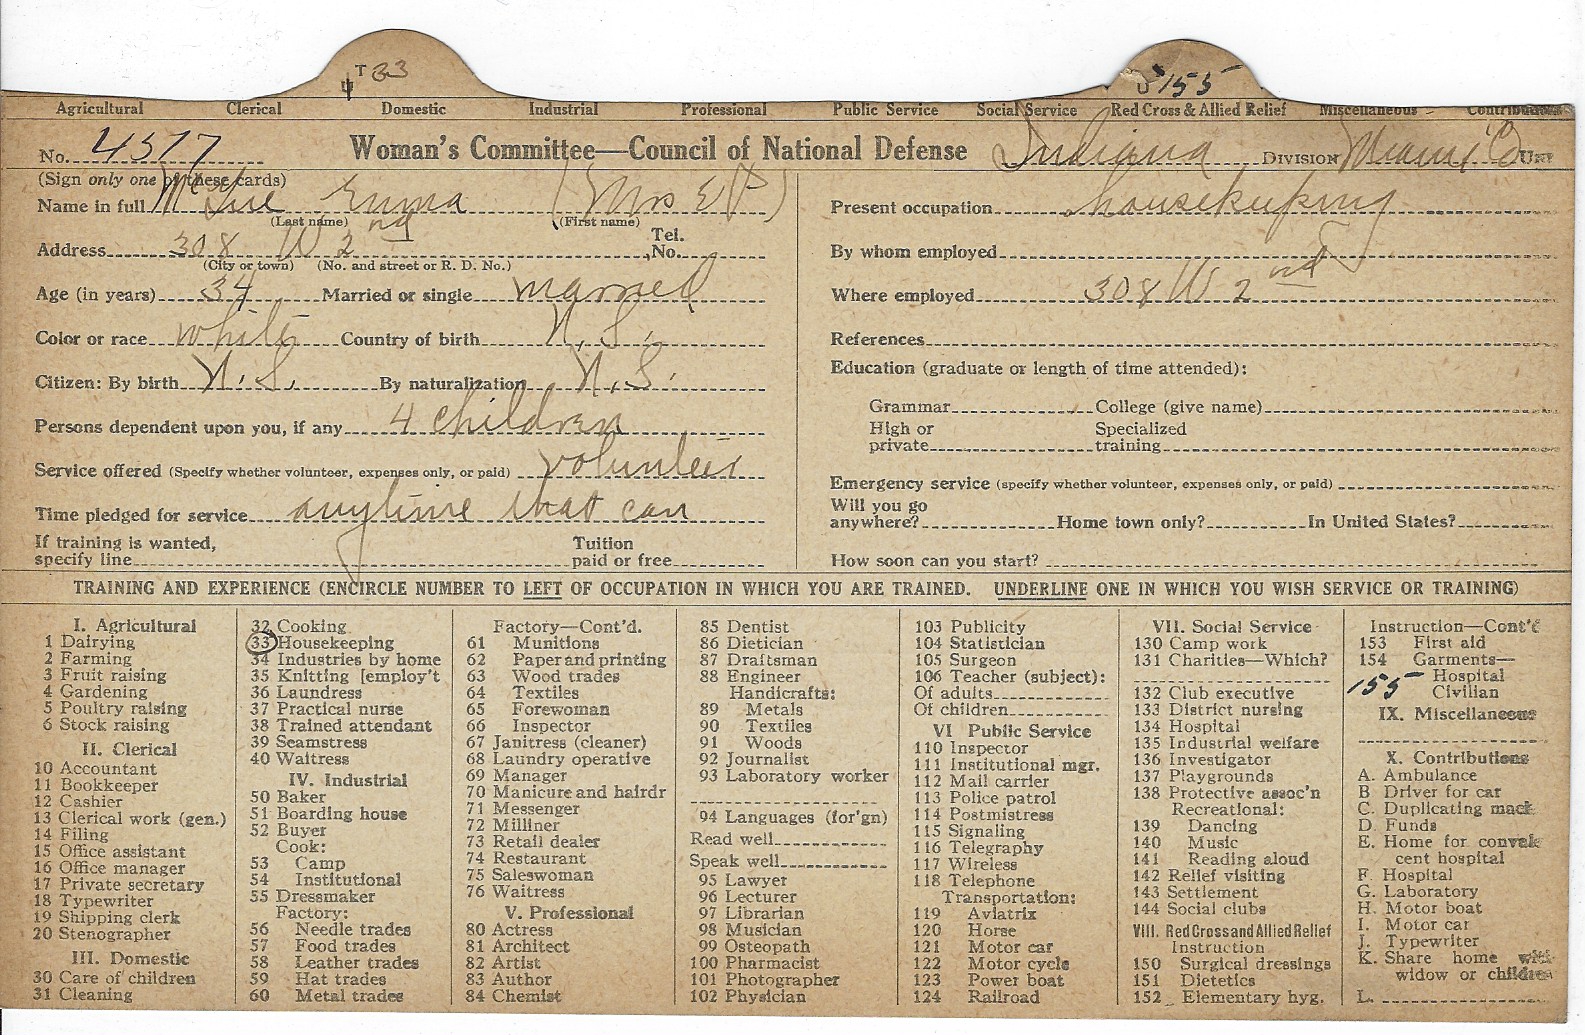 T 33
155
Agricultural Clerical Domestic Industrial Professional Public Service Social Service Red Cross & Allied Relief Miscellaneous Contributions
No. 4517 Woman's Committee—Council of National Defense Indiana DIVISION Miami Co UNIT
(Sign only one of these cards)
Name in full Emma (Mrs E P)
(Last name) (First name)
Address 308 W 2nd Tel. No.
(City or town) (No. and street or R. D. No.)
Age (in years) 34 Married or single married
Color or race white Country of birth U. S.
Citizen: By birth U. S. By naturalization U. S.
Persons dependent upon you, if any 4 children
Service offered (Specify whether volunteer, expenses only, or paid) volunteer
Time pledged for service anytime that can
If training is wanted, specify line Tuition paid or free
Present occupation housekeeping
By whom employed
Where employed 308 W 2nd
References
Education (graduate or length of time attended):
Grammar College (give name)
High or private Specialized training
Emergency service (specify whether volunteer, expenses only, or paid)
Will you go anywhere? Home town only? In United States?
How soon can you start?
TRAINING AND EXPERIENCE (ENCIRCLE NUMBER TO LEFT OF OCCUPATION IN WHICH YOU ARE TRAINED. UNDERLINE ONE IN WHICH YOU WISH SERVICE OR TRAINING)
I. Agricultural
1 Dairying
2 Farming
3 Fruit raising
4 Gardening
5 Poultry raising
6 Stock raising
II. Clerical
10 Accountant
11 Bookkeeper
12 Cashier
13 Clerical work (gen.)
14 Filing
15 Office assistant
16 Office manager
17 Private secretary
18 Typewriter
19 Shipping clerk
20 Stenographer
III. Domestic
30 Care of children
31 Cleaning
32 Cooking
33 Housekeeping
34 Industries by home
35 Knitting [employ't
36 Laundress
37 Practical nurse
38 Trained attendant
39 Seamstress
40 Waitress
IV. Industrial
50 Baker
51 Boarding house
52 Buyer
Cook:
53 Camp
54 Institutional
55 Dressmaker
Factory:
56 Needle trades
57 Food trades
58 Leather trades
59 Hat trades
60 Metal trades
Factory—Cont'd.
61 Munitions
62 Paper and printing
63 Wood trades
64 Textiles
65 Forewoman
66 Inspector
67 Janitress (cleaner)
68 Laundry operative
69 Manager
70 Manicure and hairdr
71 Messenger
72 Milliner
73 Retail dealer
74 Restaurant
75 Saleswoman
76 Waitress
V. Professional
80 Actress
81 Architect
82 Artist
83 Author
84 Chemist
85 Dentist
86 Dietician
87 Draftsman
88 Engineer
Handicrafts:
89 Metals
90 Textiles
91 Woods
92 Journalist
93 Laboratory worker
94 Languages (for'gn)
Read well
Speak well
95 Lawyer
96 Lecturer
97 Librarian
98 Musician
99 Osteopath
100 Pharmacist
101 Photographer
102 Physician
103 Publicity
104 Statistician
105 Surgeon
106 Teacher (subject):
Of adults
Of children
VI Public Service
110 Inspector
111 Institutional mgr.
112 Mail carrier
113 Police patrol
114 Postmistress
115 Signaling
116 Telegraphy
117 Wireless
118 Telephone
Transportation:
119 Aviatrix
120 Horse
121 Motor car
122 Motor cycle
123 Power boat
124 Railroad
VII. Social Service
130 Camp work
131 Charities—Which?
132 Club executive
133 District nursing
134 Hospital
135 Industrial welfare
136 Investigator
137 Playgrounds
138 Protective assoc'n
Recreational:
139 Dancing
140 Music
141 Reading aloud
142 Relief visiting
143 Settlement
144 Social clubs
VIII. Red Cross and Allied Relief
Instruction
150 Surgical dressings
151 Dietetics
152 Elementary hyg.
Instruction—Cont'd
153 First aid
154 Garments—
Hospital
155 Civilian
IX. Miscellaneous
X. Contributions
A. Ambulance
B Driver for car
C. Duplicating mach.
D. Funds
E. Home for convales
cent hospital
F. Hospital
G. Laboratory
H. Motor boat
I. Motor car
J. Typewriter
K. Share home with
widow or children
L.